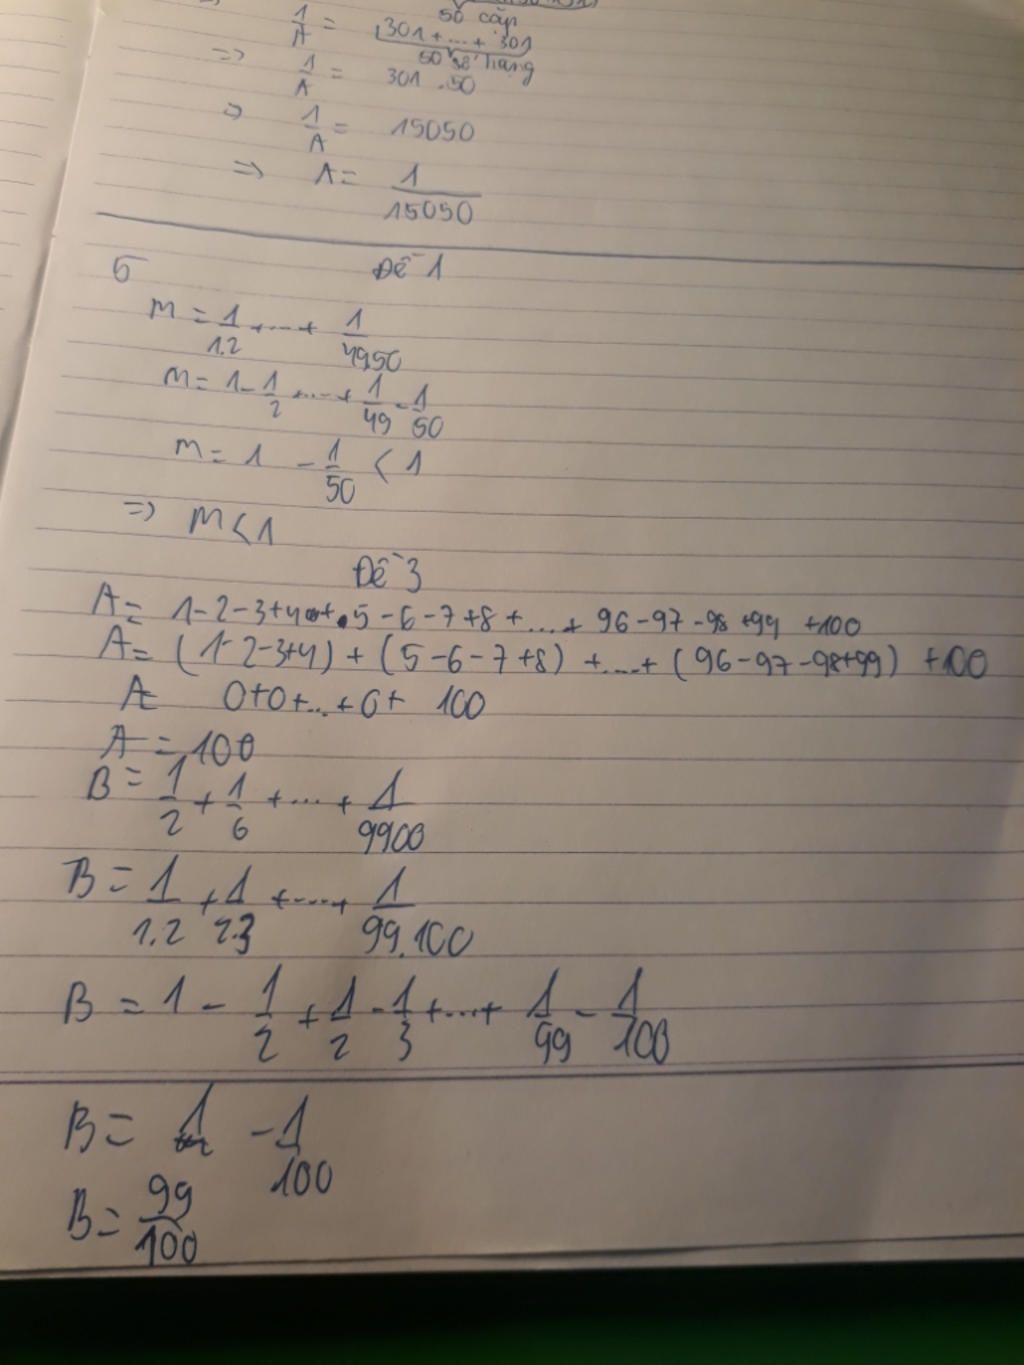 50 cặp
1/A = 301 + ... + 301
50 số hạng
=> 1/A = 301 . 50
=> 1/A = 15050
=> A = 1/15050
5 Đề 1
M = 1/1.2 + ... + 1/49.50
M = 1 - 1/2 + ... + 1/49 - 1/50
M = 1 - 1/50 < 1
=> M < 1
Đề 3
A = 1-2-3+4+5-6-7+8+...+ 96-97-98+99 +100
A = (1-2-3+4) + (5-6-7+8) +....+ (96-97-98+99) +100
A = 0+0+...+0+ 100
A = 100
B = 1/2 + 1/6 + ... + 1/9900
B = 1/1.2 + 1/2.3 + .... + 1/99.100
B = 1 - 1/2 + 1/2 - 1/3 + ... + 1/99 - 1/100
B = 1 - 1/100
B = 99/100